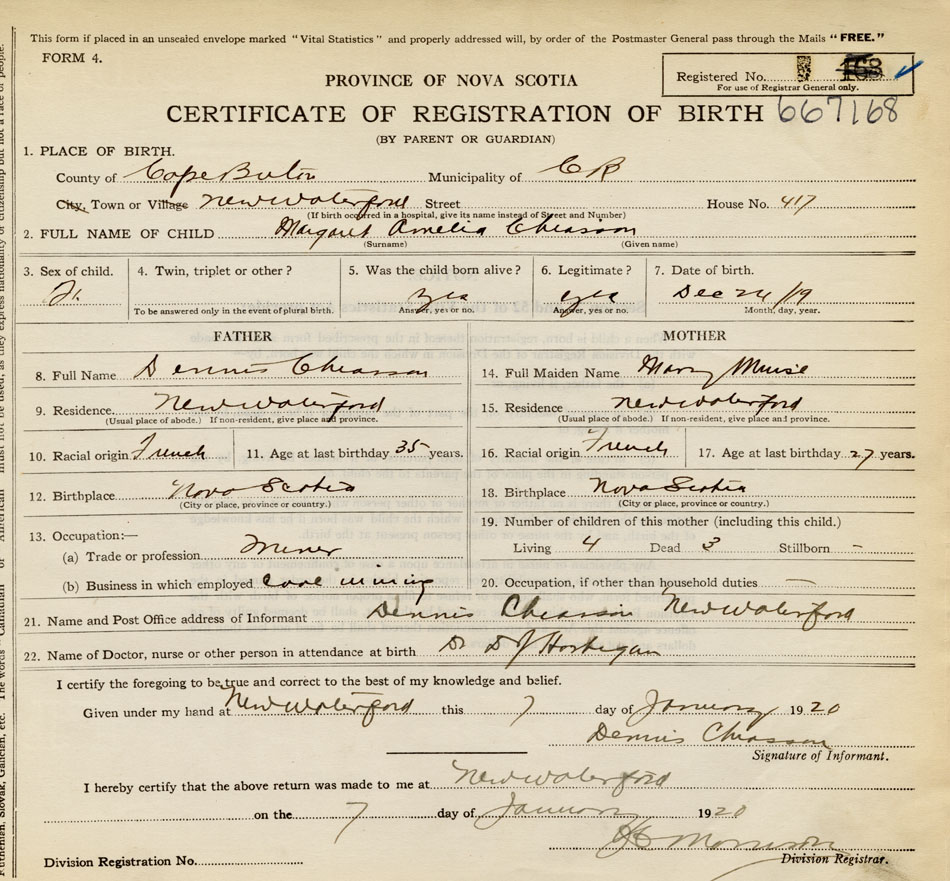 This form if placed in an unsealed envelope marked "Vital Statistics" and properly addressed will, by order of the Postmaster General pass through the Mails "FREE."
FORM 4.
Registered No. 168
For use of Registrar General only.
PROVINCE OF NOVA SCOTIA
CERTIFICATE OF REGISTRATION OF BIRTH 667168
(BY PARENT OR GUARDIAN)
1. PLACE OF BIRTH.
County of Cape Breton Municipality of C B
City, Town or Village New Waterford Street House No. 417
(If birth occurred in a hospital, give its name instead of Street and Number)
2. FULL NAME OF CHILD Margaret Amelia Chiasson
(Surname) (Given name)
3. Sex of child. 4. Twin, triplet or other? 5. Was the child born alive? 6. Legitimate? 7. Date of birth.
F. yea yea Dec 24/19
To be answered only in the event of plural birth. Answer, yes or no. Answer, yes or no. Month, day, year.
FATHER MOTHER
8. Full Name Dennis Chiasson 14. Full Maiden Name Mary Muise
9. Residence. New Waterford 15. Residence New Waterford
(Usual place of abode.) If non-resident, give place and province. (Usual place of abode.) If non-resident, give place and province.
10. Racial origin French 11. Age at last birthday 35 years. 16. Racial origin French 17. Age at last birthday 27 years.
12. Birthplace Nova Scotia 18. Birthplace Nova Scotia
(City or place, province or country.) (City or place, province or country.)
13. Occupation:— 19. Number of children of this mother (including this child.)
(a) Trade or profession Miner Living 4 Dead 3 Stillborn -
(b) Business in which employed coal mining 20. Occupation, if other than household duties —
21. Name and Post Office address of Informant Dennis Chiasson New Waterford
22. Name of Doctor, nurse or other person in attendance at birth Dr D J
I certify the foregoing to be true and correct to the best of my knowledge and belief.
Given under my hand at New Waterford this 7 day of January 1920
Dennis Chiasson
Signature of Informant.
I hereby certify that the above return was made to me at New Waterford
on the 7 day of January 1920
Morrison
Division Registration No. Division Registrar.